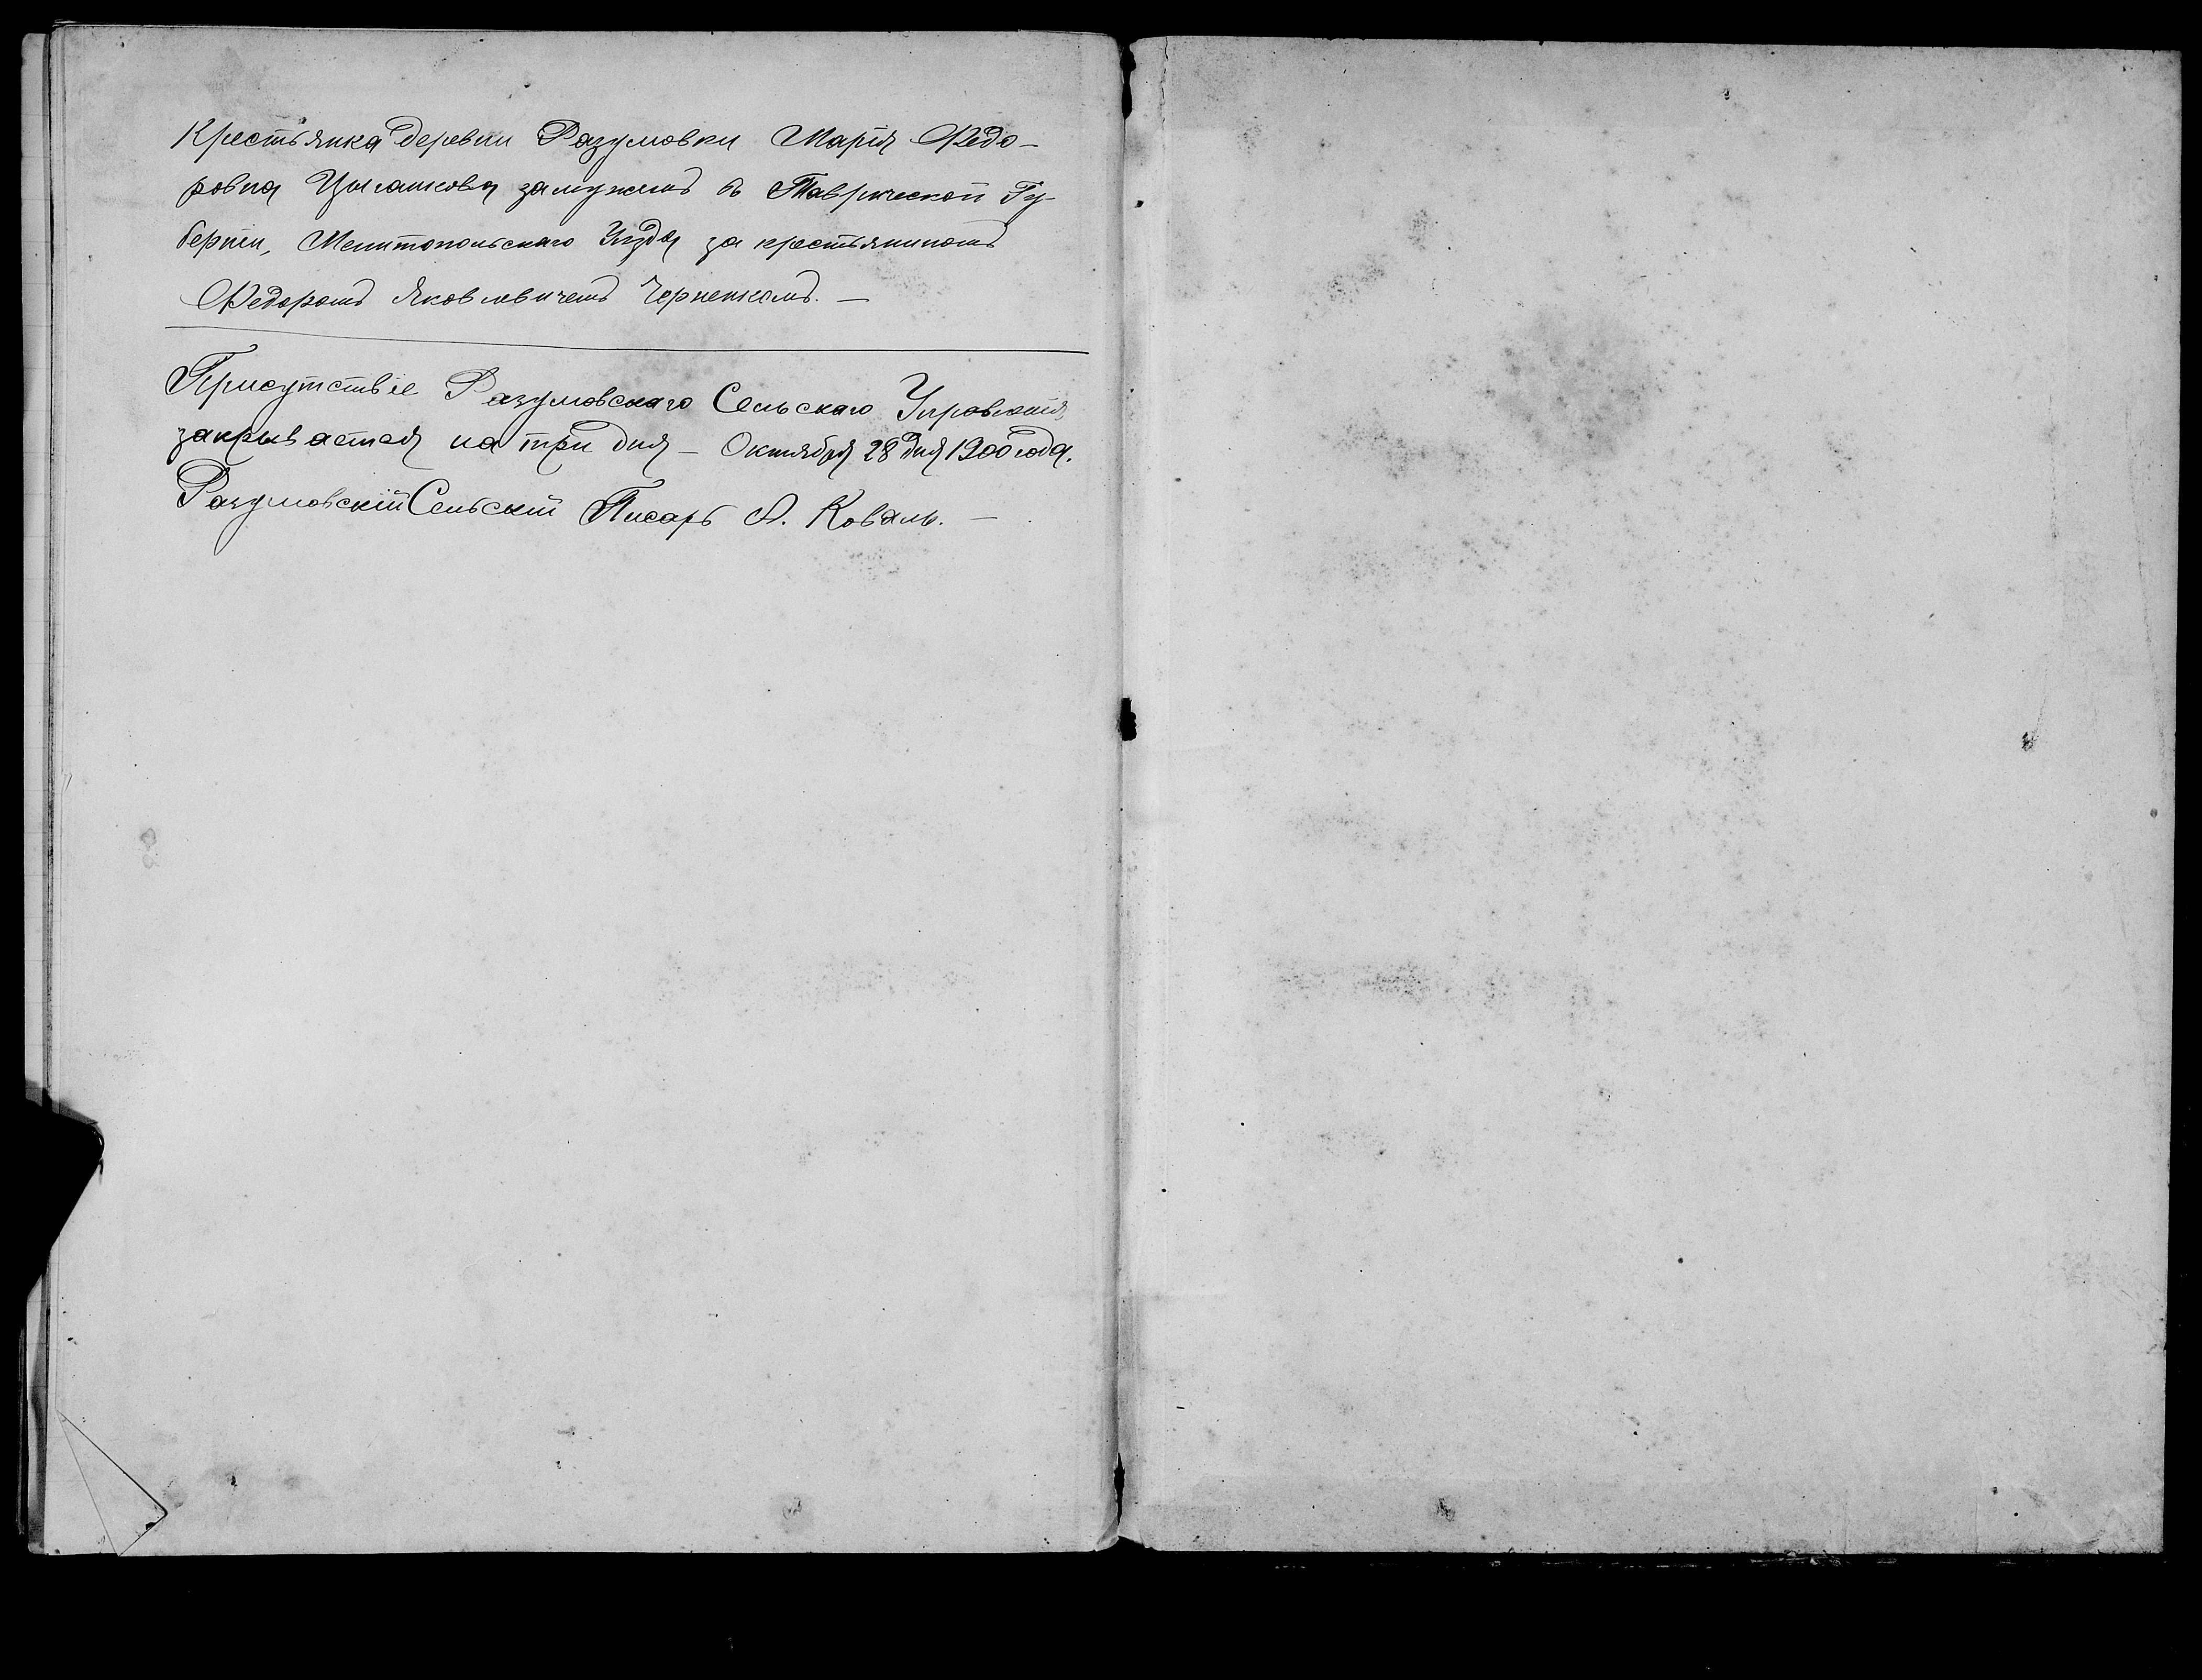 Крестьянка деревни Разумовки Марія Федо-
ровна Цыганкова замужемъ въ Таврической Гу-
берніи, Мелитопольскаго Уѣзда за крестьяниномъ
Федоромъ Яковлевичемъ Черненкомъ. —
Присутствіе Разумовскаго Сельскаго Управленія
закрывается на три дня — Октября 28 дня 1900 года.
Разумовскій Сельскій Писарь А. Коваль. —